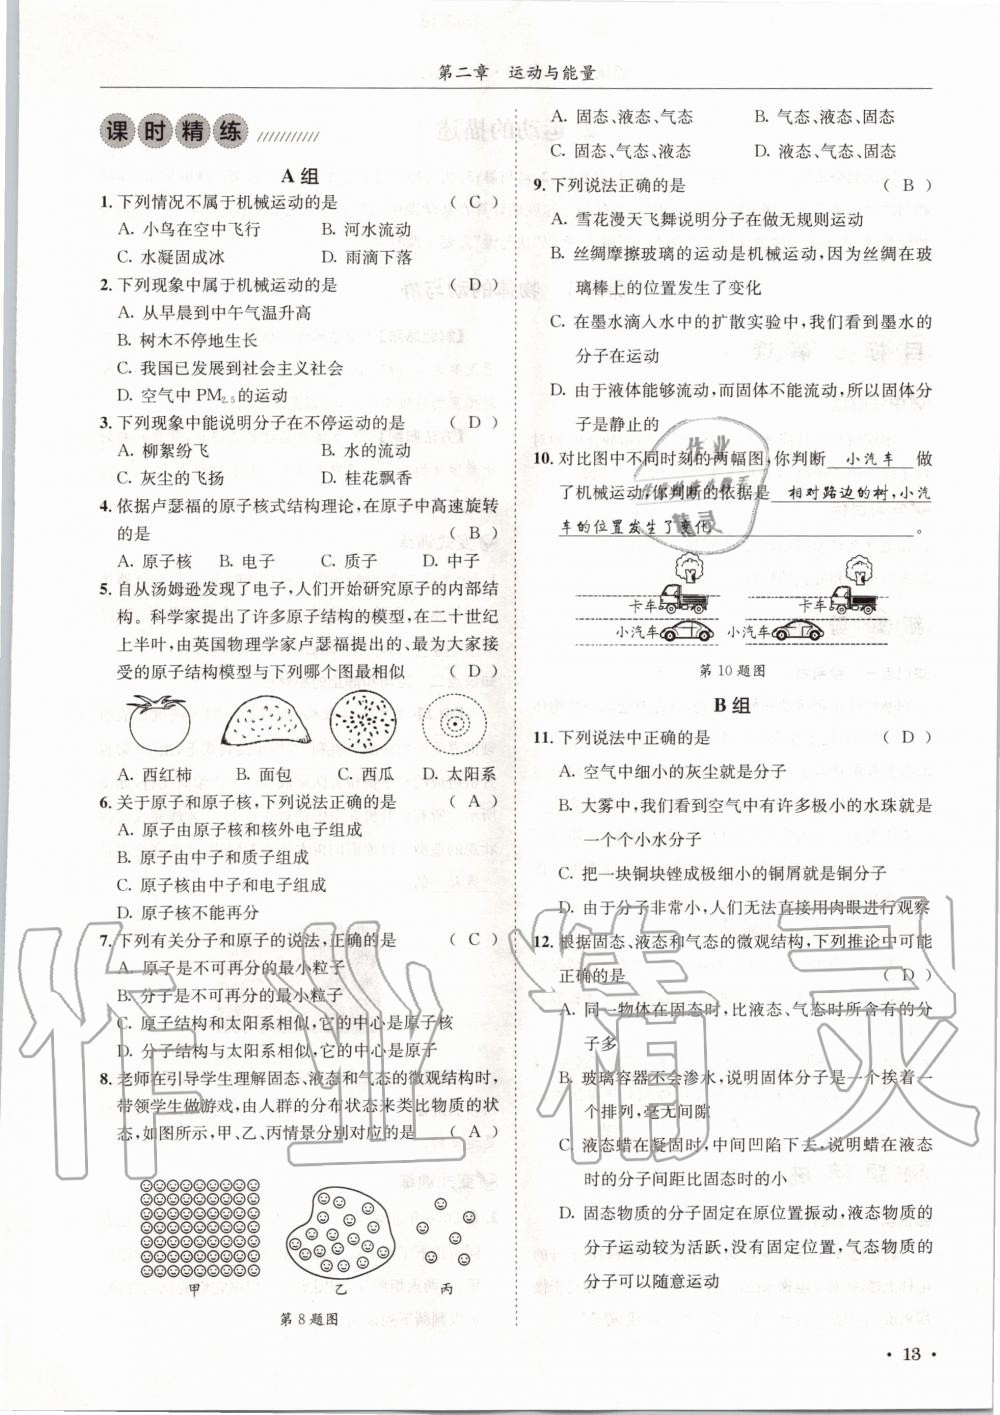 第二章 运动与能量
课时精练
A 组
1. 下列情况不属于机械运动的是 ( C )
A. 小鸟在空中飞行 B. 河水流动
C. 水凝固成冰 D. 雨滴下落
2. 下列现象中属于机械运动的是 ( D )
A. 从早晨到中午气温升高
B. 树木不停地生长
C. 我国已发展到社会主义社会
D. 空气中PM2.5的运动
3. 下列现象中能说明分子在不停运动的是 ( D )
A. 柳絮纷飞 B. 水的流动
C. 灰尘的飞扬 D. 桂花飘香
4. 依据卢瑟福的原子核式结构理论,在原子中高速旋转
的是 ( B )
A. 原子核 B. 电子 C. 质子 D. 中子
5. 自从汤姆逊发现了电子,人们开始研究原子的内部结
构。科学家提出了许多原子结构的模型,在二十世纪
上半叶,由英国物理学家卢瑟福提出的、最为大家接
受的原子结构模型与下列哪个图最相似 ( D )
A. 西红柿 B. 面包 C. 西瓜 D. 太阳系
6. 关于原子和原子核,下列说法正确的是 ( A )
A. 原子由原子核和核外电子组成
B. 原子由中子和质子组成
C. 原子核由中子和电子组成
D. 原子核不能再分
7. 下列有关分子和原子的说法,正确的是 ( C )
A. 原子是不可再分的最小粒子
B. 分子是不可再分的最小粒子
C. 原子结构和太阳系相似,它的中心是原子核
D. 分子结构与太阳系相似,它的中心是原子
8. 老师在引导学生理解固态、液态和气态的微观结构时,
带领学生做游戏,由人群的分布状态来类比物质的状
态,如图所示,甲、乙、丙情景分别对应的是 ( A )
甲 乙 丙
第8题图
A. 固态、液态、气态 B. 气态、固态、液态
C. 固态、气态、液态 D. 液态、气态、固态
9. 下列说法正确的是 ( B )
A. 雪花漫天飞舞说明分子在做无规则运动
B. 丝绸摩擦玻璃的运动是机械运动,因为丝绸在玻
璃棒上的位置发生了变化
C. 在墨水滴入水中的扩散实验中,我们看到墨水的
分子在运动
D. 由于液体能够流动,而固体不能流动,所以固体分
子是静止的
10. 对比图中不同时刻的两幅图,你判断 小汽车 做
了机械运动,你判断的依据是 相对路边的树,小汽
车的位置发生了变化 。
卡车 卡车
小汽车 小汽车
第10题图
B 组
11. 下列说法中正确的是 ( D )
A. 空气中细小的灰尘就是分子
B. 大雾中,我们看到空气中有许多极小的水珠就是
一个个小水分子
C. 把一块铜块锉成极细小的铜屑就是铜分子
D. 由于分子非常小,人们无法直接用肉眼进行观察
12. 根据固态、液态和气态的微观结构,下列推论中可能
正确的是 ( D )
A. 同一物体在固态时,比液态、气态时所含有的分
子多
B. 玻璃容器不会渗水,说明固体分子是一个挨着一
个排列,毫无间隙
C. 液态蜡在凝固时,中间凹陷下去,说明蜡在液态
时的分子间距比固态时的小
D. 固态物质的分子固定在原位置振动,液态物质的
分子运动较为活跃,没有固定位置,气态物质的
分子可以随意运动
· 13 ·
作业精灵
作业
精灵